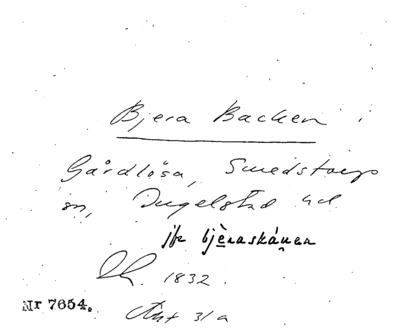 Bjera Backen i
Gårdlösa, Smedstorps
sn, Ingelstad hd.
jfr bjèraskánen
1832.
Nr 7654.
Ant 31a